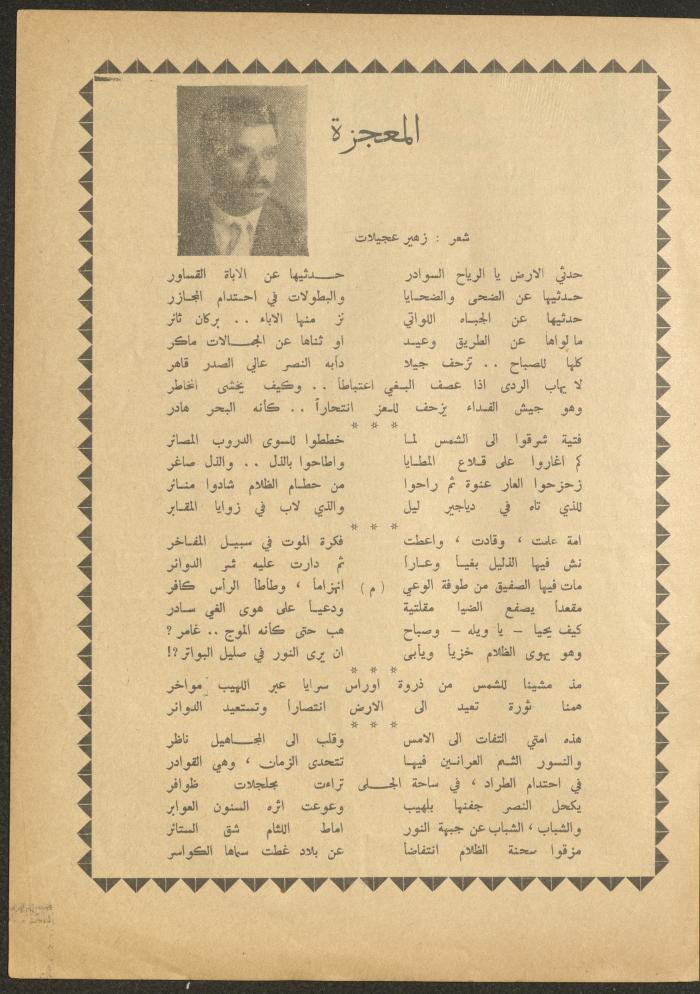 المعجزة
شعر : زهير عجيلات
حدثي الارض يا الرياح السوادر حـــدثيها عن الاباة القساور
حـدثيها عن الضحى والضحـايا والبطولات في احـتدام المجـازر
حدثيها عن الجبـاه اللواتي نز منها الاباء . . بركان ثائر
ما لواها عن الطريق وعيـد او ثناها عن الجمـالات ماكر
كلها للصباح . . تزحف جيلا دابه النصر عالي الصدر قاهر
لا يهاب الردى اذا عصف البـغي اعتباطاً . . وكيف يخشى المخاطر
وهو جيش الفـداء يزحف للـعز انتحاراً . . كأنه البحر هادر
* * *
فتية شرقوا الى الشمس لمـا خططوا للسوى الدروب المصائر
كم اغاروا على قـلاع المطـايا واطاحوا بالذل . . والذل صاغر
زحزحوا العار عنوة ثم راحوا من حطـام الظلام شادوا منـائر
للذي تاه في دياجير ليل والذي لاب في زوايا المقـابر
* * *
امة علمت ، وقادت ، واعطت فكرة الموت في سبيـل المفـاخر
نش فيها الذليل بغيـاً وعـاراً ثم دارت عليه شـر الدوائر
مات فيها الصفيق من طوفة الوعي ( م ) انهزاماً ، وطاطأ الرأس كافر
مقعداً يصفع الضيا مقلتية ودعيـا على هوى الغي سـادر
كيف يحيا – يا ويله – وصباح هب حتى كأنه الموج . . غامر ؟
وهو يهوى الظلام خزياً ويأبى ان يرى النور في صليل البواتر ؟!
* * *
مذ مشينا للشمس من ذروة اوراس سرايا عبر اللهيب مواخر
همنا ثورة تعيد الى الارض انتصاراً وتستعيد الدوائر
* * *
هذه امتي التفات الى الامس وقلب الى المجـاهيل ناظر
والنسور الشـم العرانـين فيهـا تتحدى الزمان ، وهي القوادر
في احتدام الطراد ، في ساحة الجـلى تراءت بجلجلات ظوافر
يكحل النصر جفنها بلهيب وعوعت اثره السنون العوابر
والشباب ، الشباب عن جبهة النور اماط اللثام شق الستائر
مزقوا سحنة الظلام انتفاضاً عن بلاد غطت سماها الكواسر